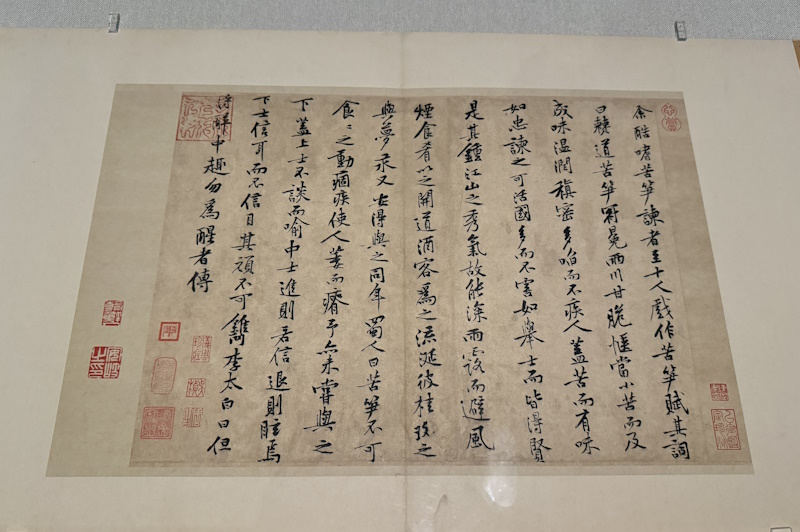 余酷嗜苦笋諫者至十人戲作苦笋賦其詞
曰僰道苦笋冠冕兩川甘脆愜當小苦而及
成味温潤稹密多啗而不疾人蓋苦而有味
如忠諫之可活國多而不害如舉士而皆得賢
是其鍾江山之秀氣故能深雨露而避風
煙食肴以之開道酒客為之流涎彼桂玫之
與夢汞又安得與之同年蜀人曰苦笋不可
食〻之動痼疾使人萎而瘠予亦未嘗與之
下蓋上士不談而喻中士進則若信退則眩焉
下士信耳而不信目其頑不可鐫李太白曰但
得醉中趣勿為醒者傳